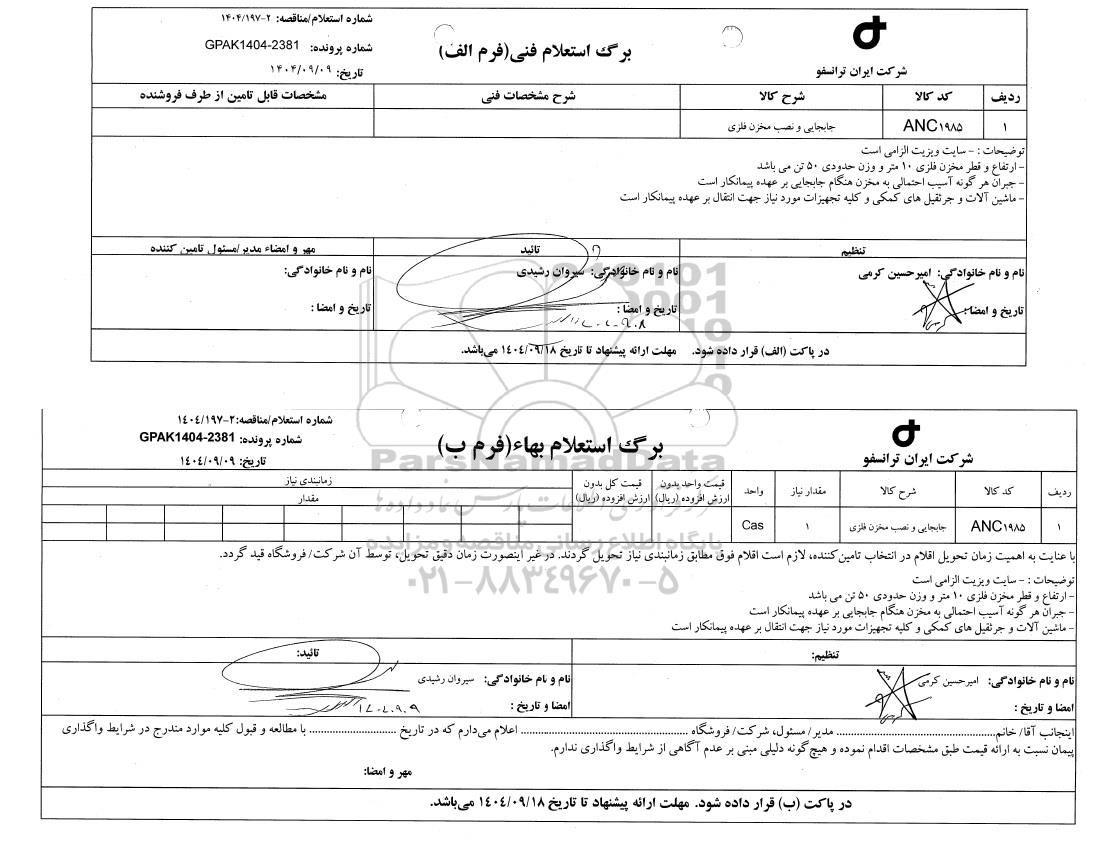 شماره استعلام/مناقصه: ۱۴۰۴/۱۹۷-۲
برگ استعلام فنی(فرم الف)
شماره پرونده: GPAK1404-2381
شرکت ایران ترانسفو
تاریخ: ۱۴۰۴/۰۹/۰۹
ردیف کد کالا شرح کالا شرح مشخصات فنی مشخصات قابل تامین از طرف فروشنده
۱ ANC۱۹۸۵ جابجایی و نصب مخزن فلزی
توضیحات : - سایت ویزیت الزامی است
- ارتفاع و قطر مخزن فلزی ۱۰ متر و وزن حدودی ۵۰ تن می باشد
- جبران هر گونه آسیب احتمالی به مخزن هنگام جابجایی بر عهده پیمانکار است
- ماشین آلات و جرثقیل های کمکی و کلیه تجهیزات مورد نیاز جهت انتقال بر عهده پیمانکار است
تنظیم تائید مهر و امضاء مدیر/مسئول تامین کننده
نام و نام خانوادگی: امیرحسین کرمی نام و نام خانوادگی: سیروان رشیدی نام و نام خانوادگی:
تاریخ و امضا : تاریخ و امضا : تاریخ و امضا :
در پاکت (الف) قرار داده شود. مهلت ارائه پیشنهاد تا تاریخ ۱۴۰۴/۰۹/۱۸ می‌باشد.
ParsNamadData
پایگاه اطلاع رسانی مناقصه و مزایده
۰۲۱-۸۸۳۴۹۶۷۰-۵
شماره استعلام/مناقصه:۱۴۰۴/۱۹۷-۲
برگ استعلام بهاء(فرم ب)
شماره پرونده: GPAK1404-2381
شرکت ایران ترانسفو
تاریخ: ۱۴۰۴/۰۹/۰۹
ردیف کد کالا شرح کالا مقدار نیاز واحد قیمت واحد بدون ارزش افزوده (ریال) قیمت کل بدون ارزش افزوده (ریال) زمانبندی نیاز
مقدار
۱ ANC۱۹۸۵ جابجایی و نصب مخزن فلزی ۱ Cas
با عنایت به اهمیت زمان تحویل اقلام در انتخاب تامین‌کننده، لازم است اقلام فوق مطابق زمانبندی نیاز تحویل گردند. در غیر اینصورت زمان دقیق تحویل، توسط آن شرکت/ فروشگاه قید گردد.
توضیحات : - سایت ویزیت الزامی است
- ارتفاع و قطر مخزن فلزی ۱۰ متر و وزن حدودی ۵۰ تن می باشد
- جبران هر گونه آسیب احتمالی به مخزن هنگام جابجایی بر عهده پیمانکار است
- ماشین آلات و جرثقیل های کمکی و کلیه تجهیزات مورد نیاز جهت انتقال بر عهده پیمانکار است
تنظیم: تائید:
نام و نام خانوادگی: امیرحسین کرمی نام و نام خانوادگی: سیروان رشیدی
امضا و تاریخ : امضا و تاریخ :
اینجانب آقا/ خانم........................ مدیر/ مسئول، شرکت/ فروشگاه ........................ اعلام می‌دارم که در تاریخ ........................ با مطالعه و قبول کلیه موارد مندرج در شرایط واگذاری
پیمان نسبت به ارائه قیمت طبق مشخصات اقدام نموده و هیچ‌گونه دلیلی مبنی بر عدم آگاهی از شرایط واگذاری ندارم.
مهر و امضا:
در پاکت (ب) قرار داده شود. مهلت ارائه پیشنهاد تا تاریخ ۱۴۰۴/۰۹/۱۸ می‌باشد.